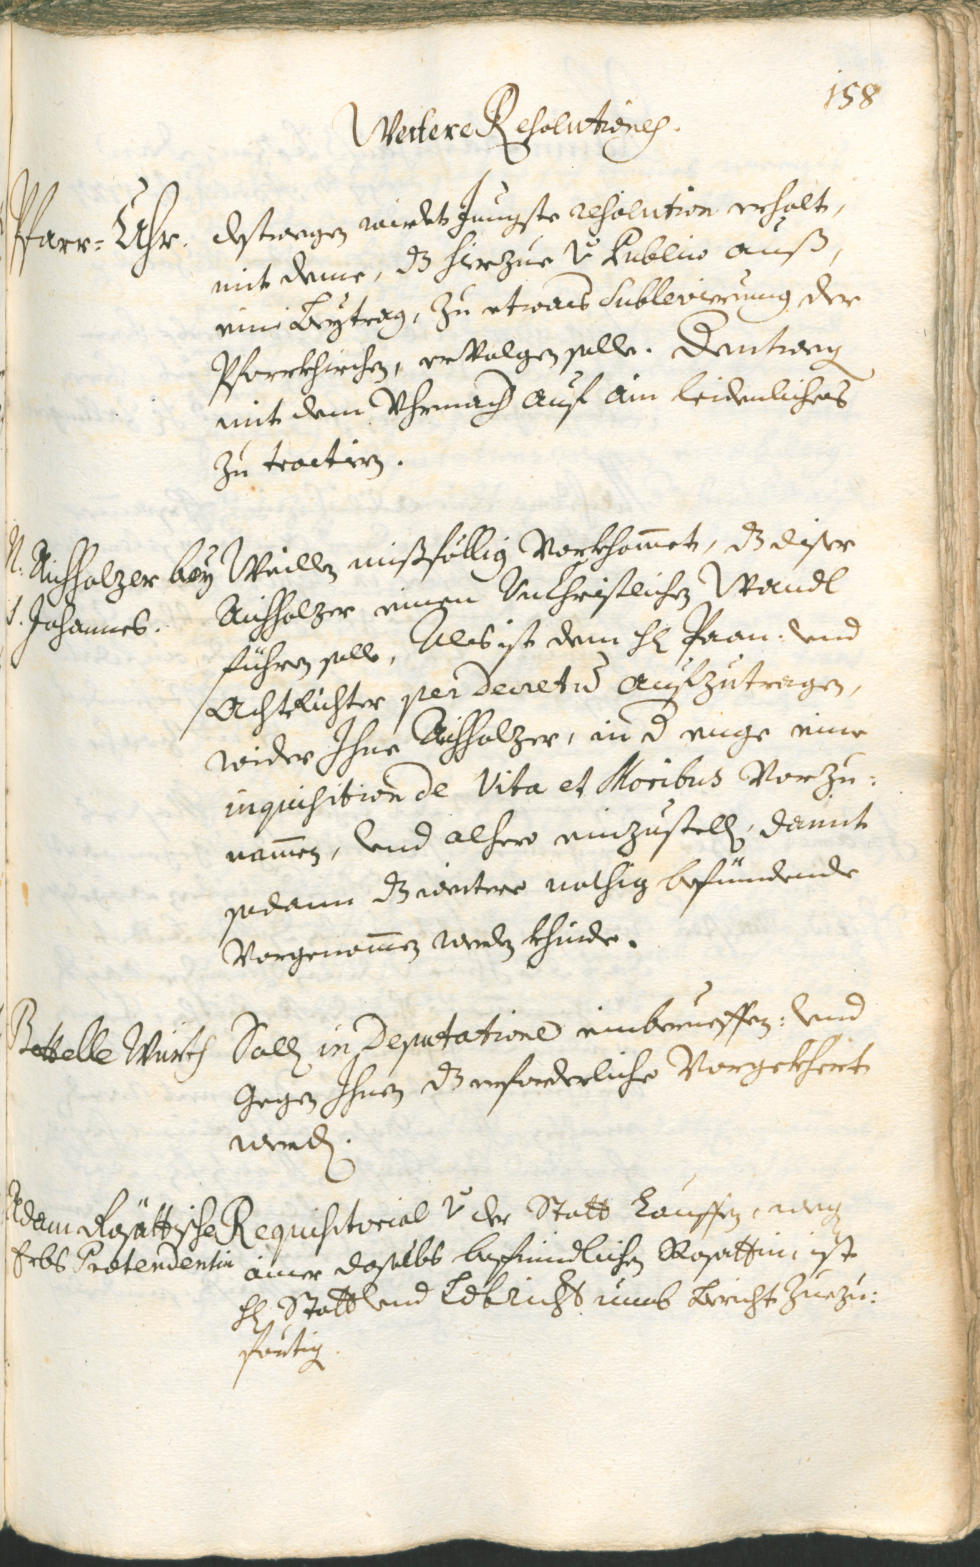 158
Weitere Resolutiones.
Pfarr= Uhr.
destwegen wirdt Jüngste resolution erholt,
mit deme, dz hierzue ex Publico auß,
eine Beytrag, zu etwas Sublevierung der
Pfarrkhirchen, ervolgen solle. Dentweg
mit dem Uhrmach auf ain leidenliches
zu tractirn.
N. Aichholzer bey
S. Johannes.
Weillen mißföllig Vorkhommet, dz diser
Aichholzer einen Unchristlichen Wandl
führen solle, Als ist dem H Paan: und
Achtrichter per decretum aufzutragen,
wider Ihne Aichholzer, in d enge eine
inquisition de Vita et Moribus Vorzu:
nemmen, und alhero einzustellen, damit
sodann dz weitere nothig befündende
Vorgenommen werden khinde.
Bettelle Würth
Solle in Deputatione einberueffen: und
gegen Ihnen dz erforderliche Vorgekhert
werden.
Adam Rosättische
Erbs Prætendentin
Requisitorial der Statt Lauffen, weg
ainer daselbs befündlichen Rosattin, ist
H Statt und umb Bericht zuezu: